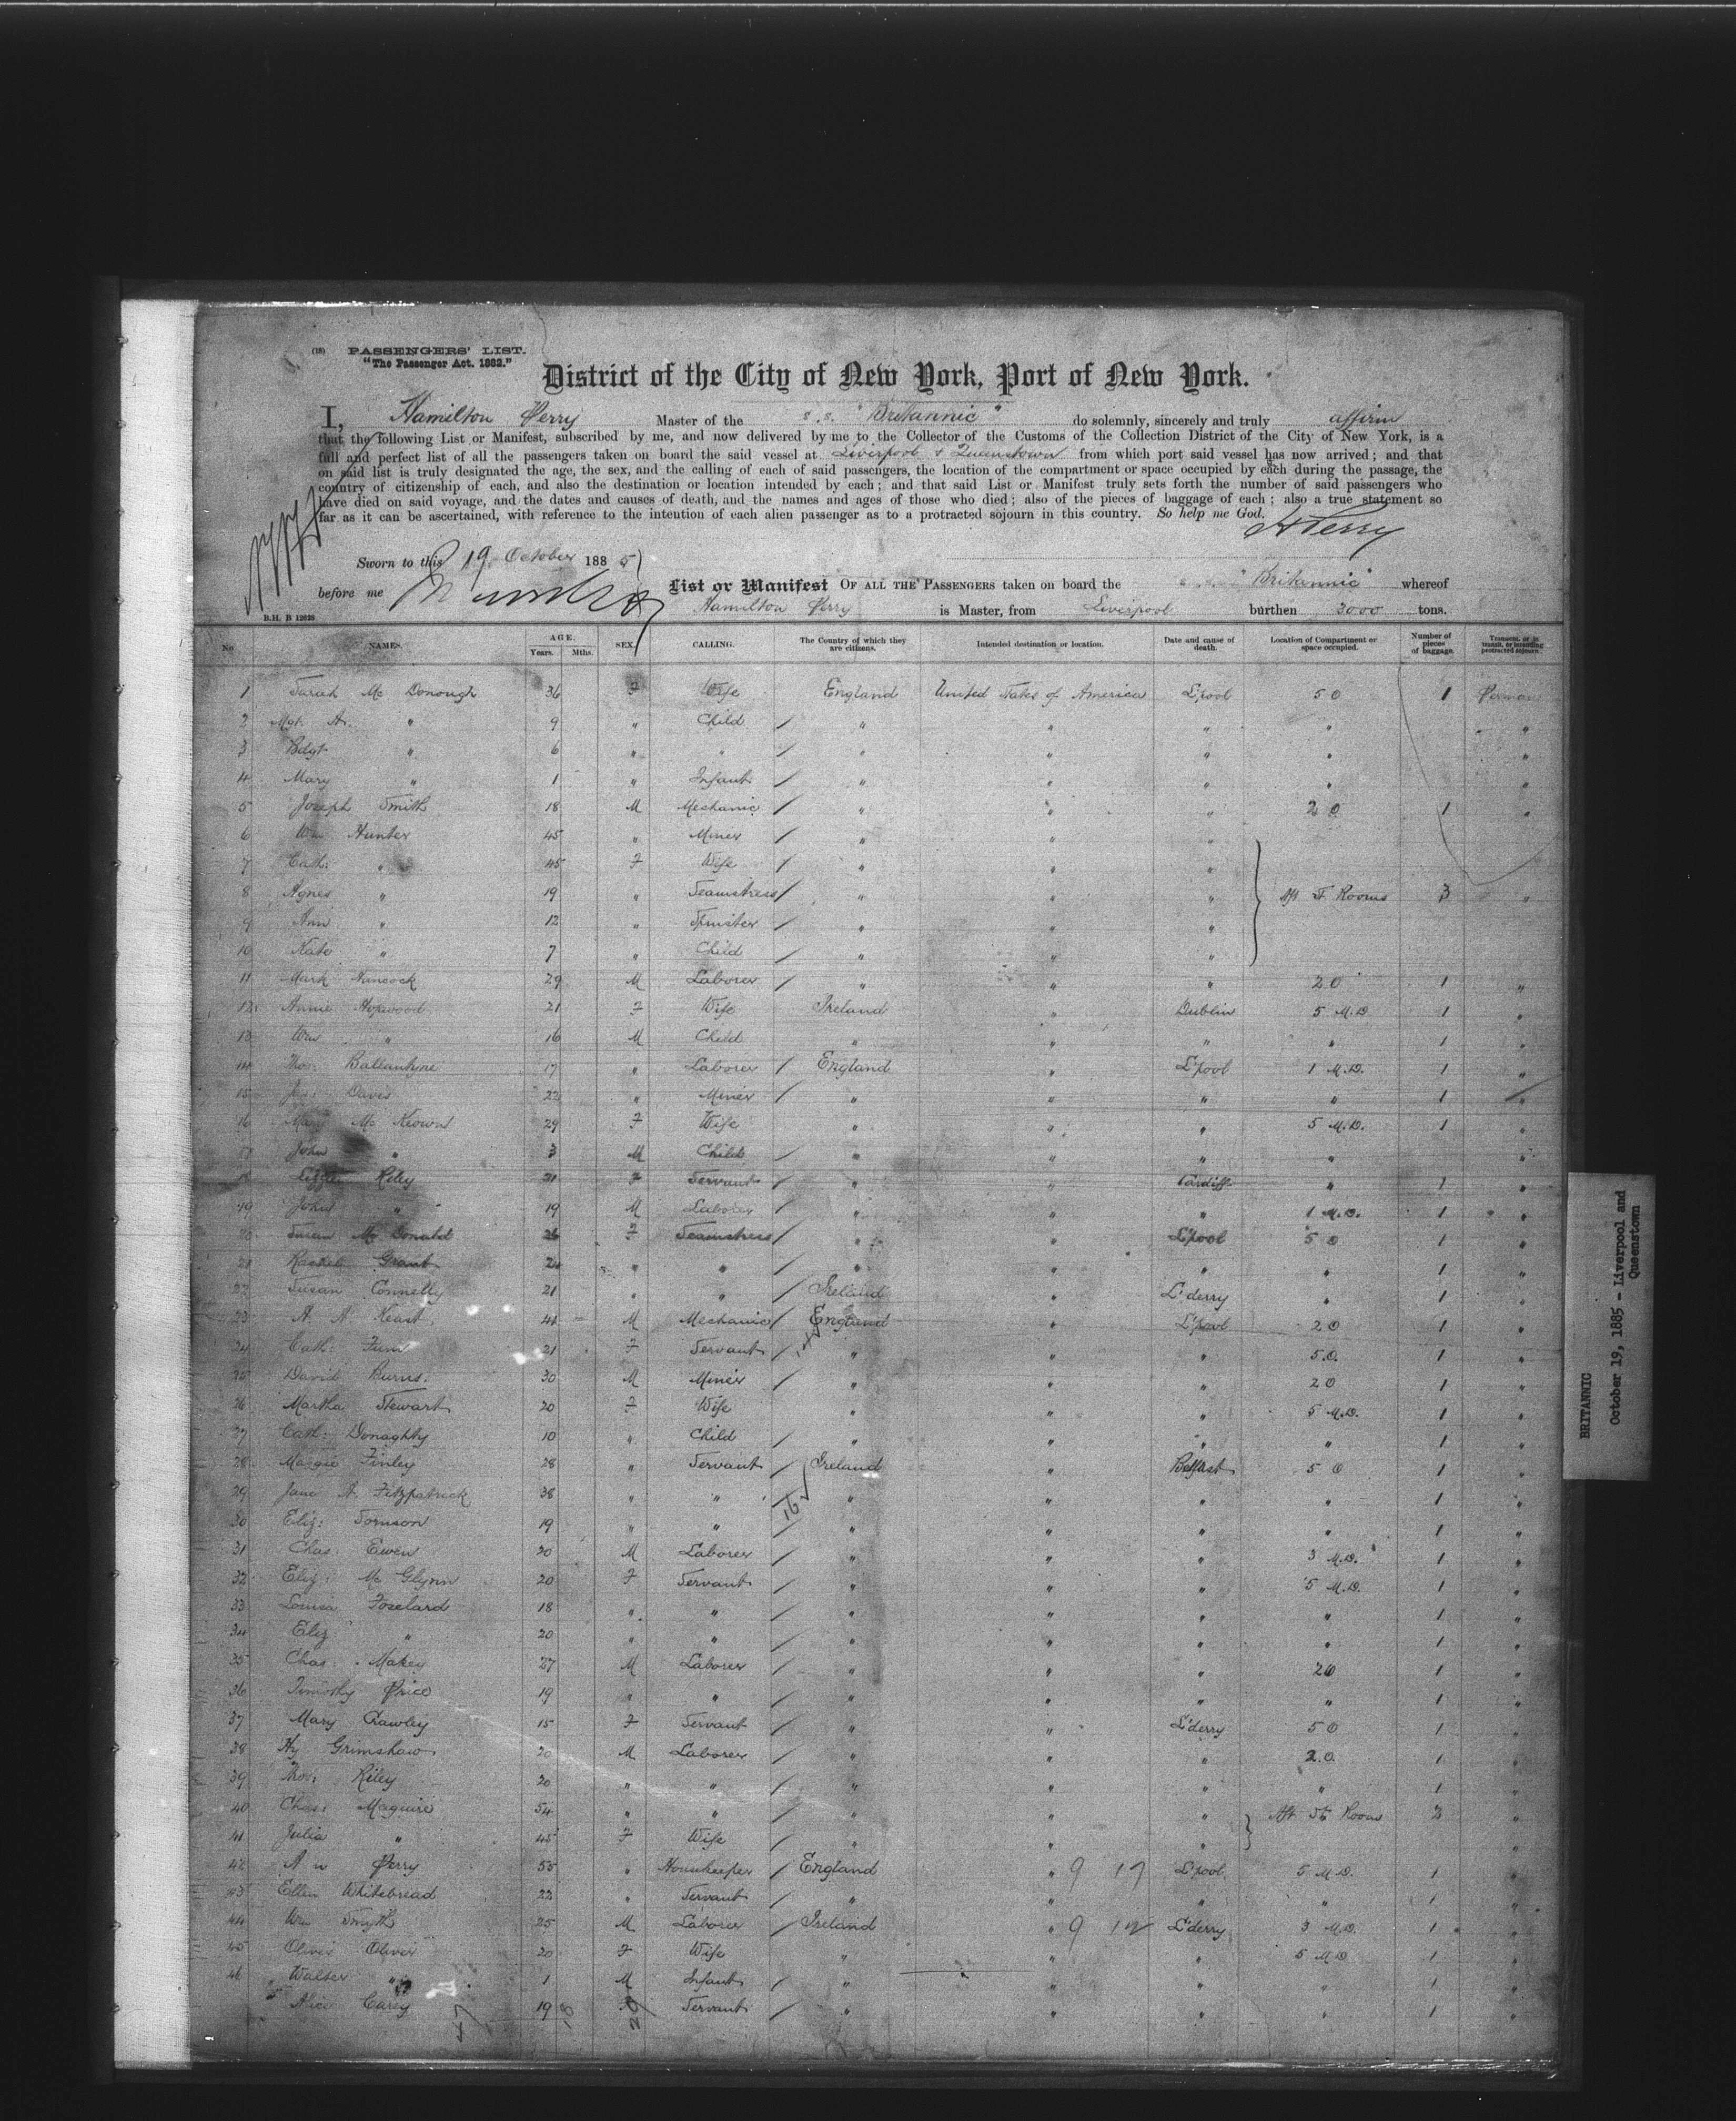 (18) PASSENGERS' LIST.
"The Passenger Act. 1882."
District of the City of New York, Port of New York.
I, Hamilton Perry Master of the s.s. "Britannic" do solemnly, sincerely and truly affirm
that the following List or Manifest, subscribed by me, and now delivered by me to the Collector of the Customs of the Collection District of the City of New York, is a
full and perfect list of all the passengers taken on board the said vessel at Liverpool & Queenstown from which port said vessel has now arrived; and that
on said list is truly designated the age, the sex, and the calling of each of said passengers, the location of the compartment or space occupied by each during the passage, the
country of citizenship of each, and also the destination or location intended by each; and that said List or Manifest truly sets forth the number of said passengers who
have died on said voyage, and the dates and causes of death, and the names and ages of those who died; also of the pieces of baggage of each; also a true statement so
far as it can be ascertained, with reference to the intention of each alien passenger as to a protracted sojourn in this country. So help me God.
H Perry
Sworn to this 19 October 1885
before me
List or Manifest OF ALL THE PASSENGERS taken on board the "Britannic" whereof
Hamilton Perry is Master, from Liverpool burthen 3000 tons.
B.H. B 12628
No NAMES. AGE. Years. Mths. SEX. CALLING. The Country of which they are citizens. Intended destination or location. Date and cause of death. Location of Compartment or space occupied. Number of pieces of baggage. Transient, or in transit, or intending protracted sojourn.
1 Sarah Mc Donough 36 F Wife England United States of America L'pool 5 O 1
2 Mgt. A. " 9 " Child / " " " " "
3 Bdgt " 6 " " / " " " " "
4 Mary " 1 " Infant / " " " " "
5 Joseph Smith 18 M Mechanic / " " " 2 O 1 "
6 Wm Hunter 45 " Miner / " " "
7 Cath: " 45 F Wife / " " "
8 Agnes " 19 " Seamstress / " " " Aft F Rooms 3 "
9 Ann " 12 " Spinster / " " "
10 Kate " 7 " Child / " " "
11 Mark Hancock 29 M Laborer / " " " 2 O 1 "
12 Annie Hopwood 21 F Wife Ireland " Dublin 5 M.D. 1 "
13 Wm " 16 M Child " " " " 1 "
14 Thos: Ballantyne 17 " Laborer / England " L'pool 1 M.D. 1 "
15 Davis 22 " Miner / " " " " 1 "
16 Mary Mc Keown 29 F Wife " " " 5 M.D. 1 "
17 John " 3 M Child / " " " " "
18 Lizzie Riley 21 F Servant / " " Cardiff " 1 "
19 John " 19 M Laborer / " " " 1 M.D. 1 "
20 Susan Mc Donald 26 F Seamstress / " " L'pool 5 O 1 "
21 Rachel Grant " " / " " " " 1 "
22 Susan Connelly 21 " " / Ireland " L'derry " 1 "
23 A. A. Keast 44 M Mechanic / England " L'pool 2 O 1 "
24 Cath: 21 F Servant / " " " 5.O. 1 "
25 David Burns. 30 M Miner / " " " 2 O 1 "
26 Martha Stewart 20 F Wife " " " 5 M.D. 1 "
27 Cath: Donaghty 10 " Child / " " " " 1 "
28 Maggie Finley 28 " Servant / Ireland " Belfast 5 O 1 "
29 Jane A. Fitzpatrick 38 " " / " " " " 1 "
30 Eliz: 19 " " / " " " " 1 "
31 Chas: Ewen 20 M Laborer / " " " 3 M.D. 1 "
32 Eliz: Mc Glynn 20 F Servant / " " " 5 M.D. 1 "
33 Louisa Fozelard 18 " " / " " " " 1 "
34 Eliz " 20 " " / " " " " 1 "
35 Chas: Makey 27 M Laborer / " " " 2 O 1 "
36 Timothy Price 19 " " / " " " " 1 "
37 Mary Crawley 15 F Servant / " " L'derry 5 O 1 "
38 Hy Grimshaw 20 M Laborer / " " " 2.O. 1 "
39 Thos: Riley 20 " " / " " " " 1 "
40 Chas: Maguire 54 " " / " " " Aft St Room 2 "
41 Julia " 45 F Wife / " " " "
42 Perry 55 " Housekeeper / England " 9 17 L'pool 5 M.D. 1 "
43 Ellen Whitebread 22 " Servant / " " " " 1 "
44 Wm Smyth 25 M Laborer / Ireland " 9 L'derry 3 M.D. 1 "
45 Olivia Oliver 20 F Wife " " " 5 M.D 1 "
46 Walter " 1 M Infant / " " " " 1 "
Alice Carey 19 Servant / " " " " 1 "
47
BRITANNIC
October 19, 1885 - Liverpool and
Queenstown